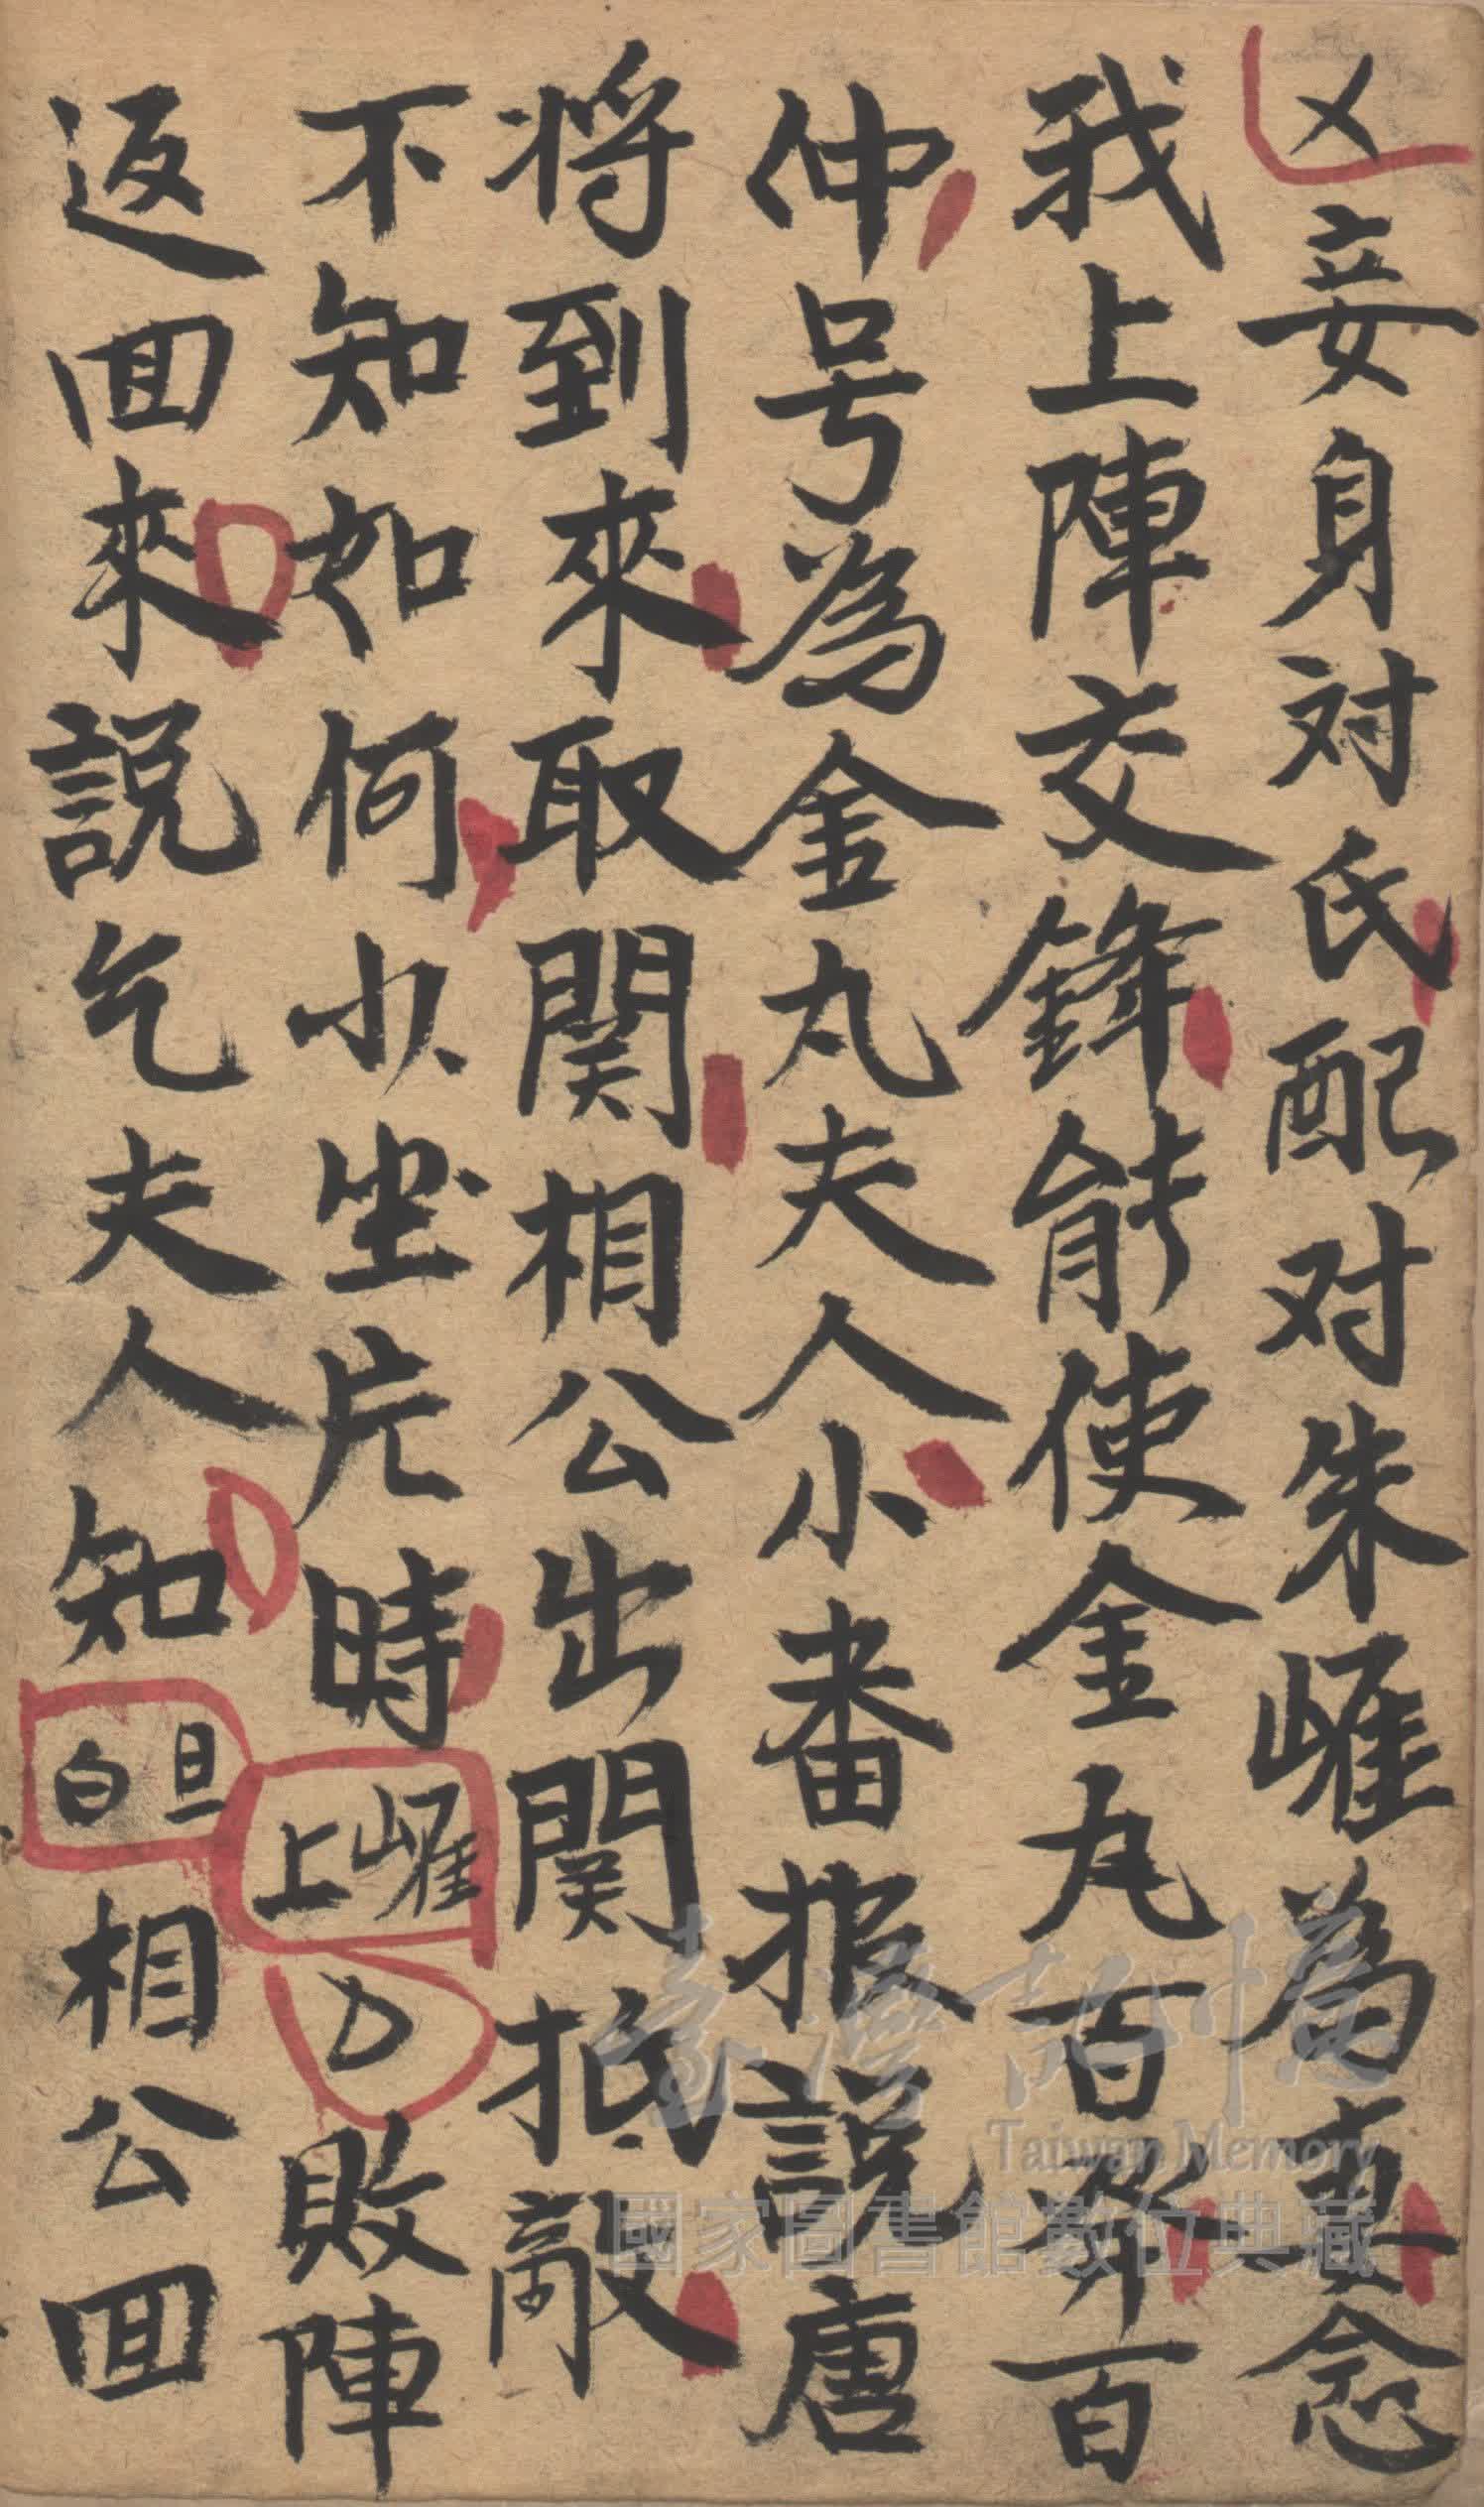 乂妾身対氏配对朱崕為妻念
我上陣交鋒能使金丸百發百
仲号為金丸夫人小番报説唐
将到來取関相公出関抵敵
不知如何少坐片時崕上乃敗陣
返回來説乞夫人知旦白相公回
臺灣記憶
Taiwan Memory
國家圖書館數位典藏